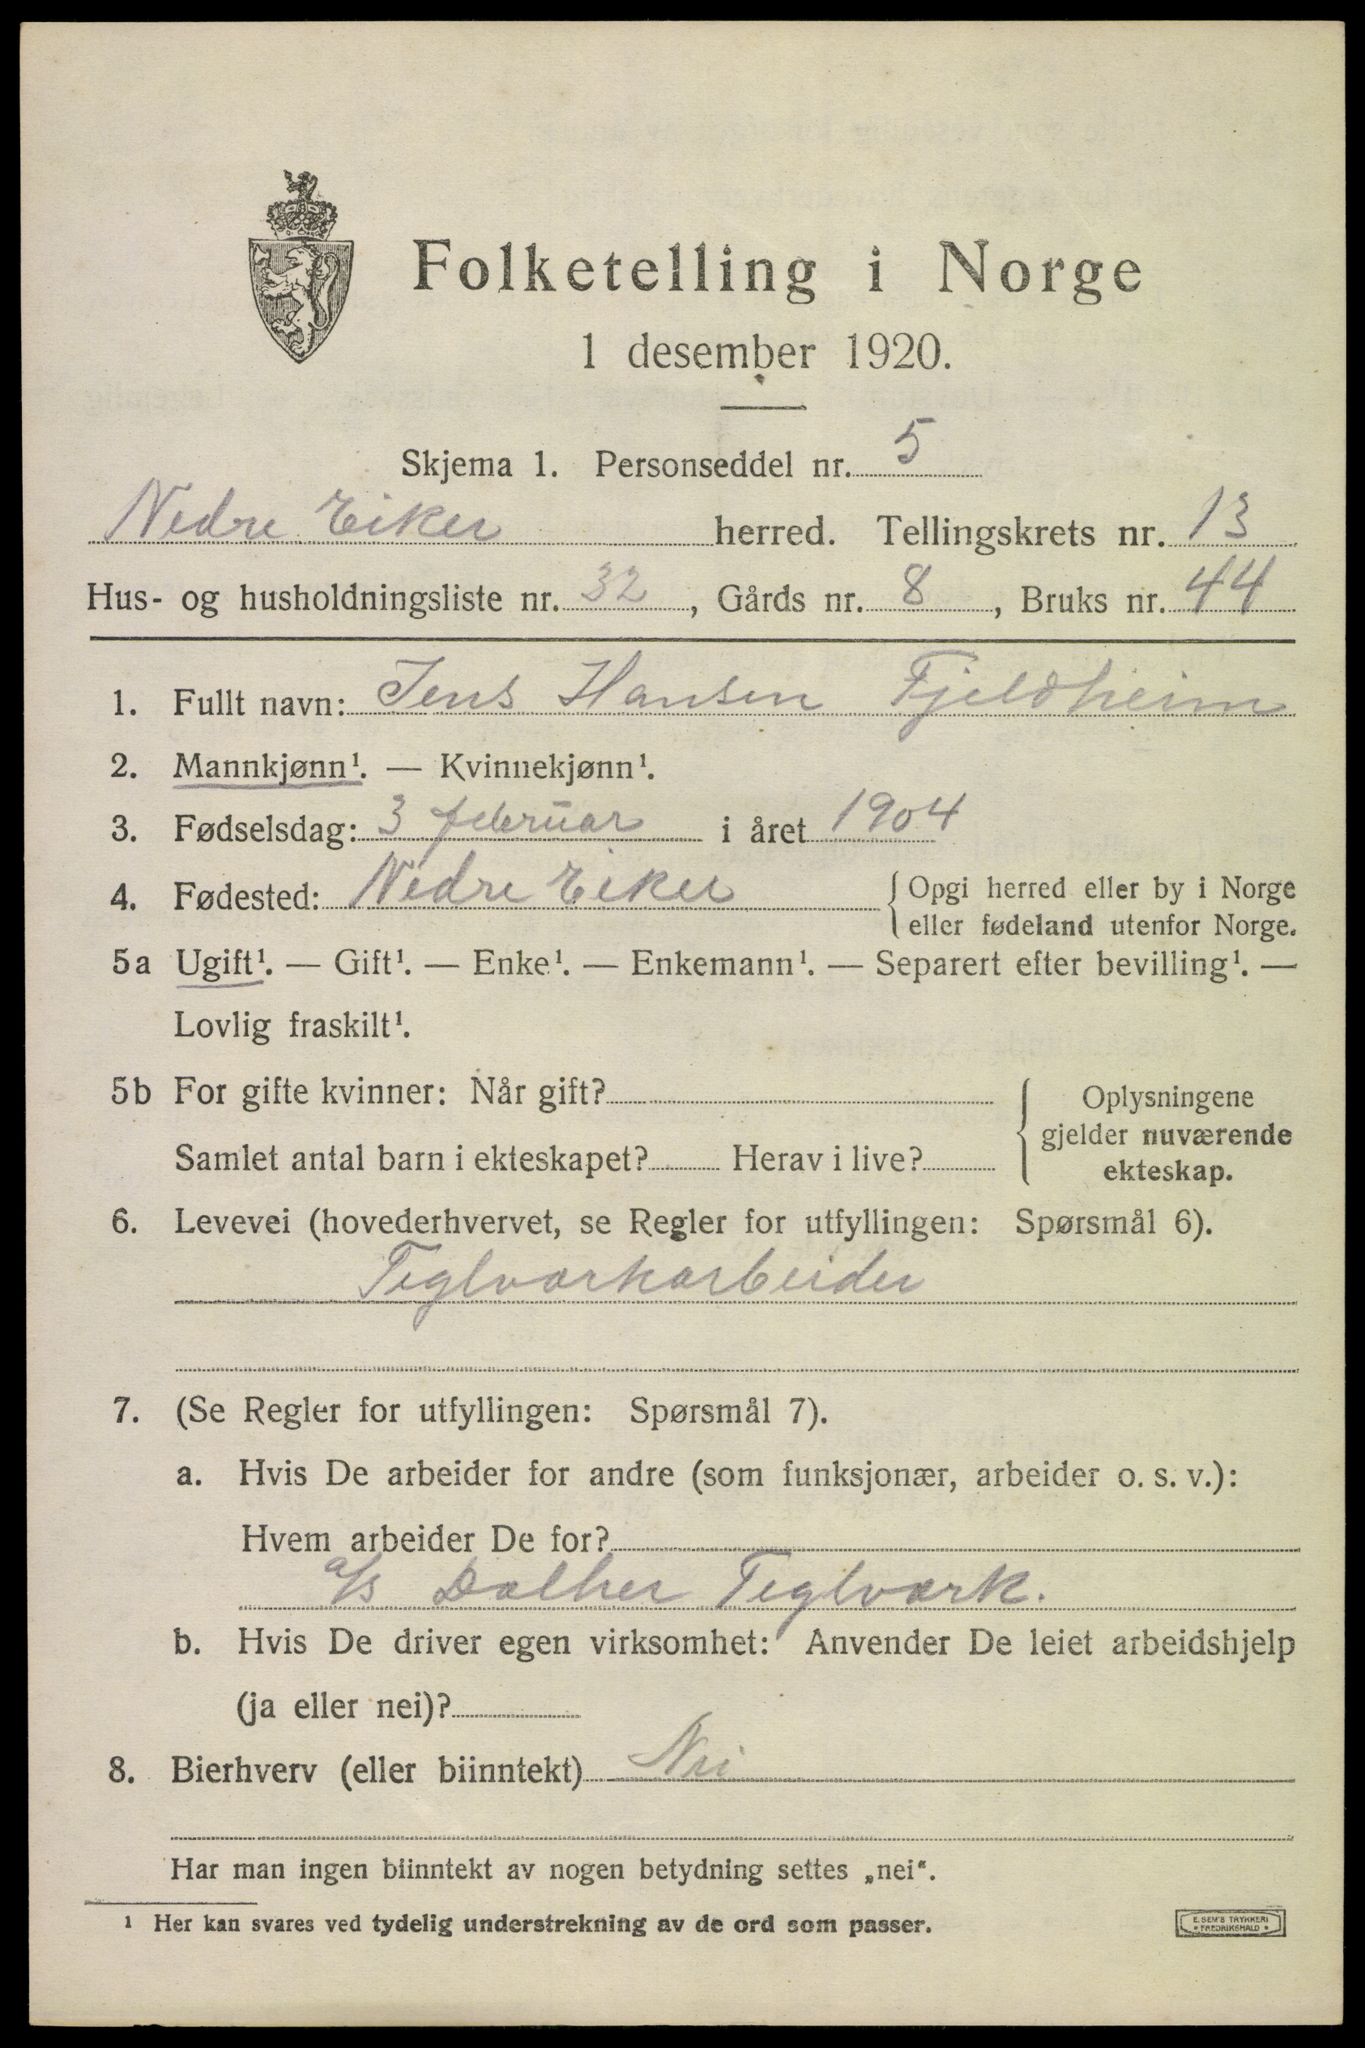 Folketelling i Norge
1 desember 1920.
Skjema 1. Personseddel nr. 5
Nedre Eiker herred. Tellingskrets nr. 13
Hus- og husholdningsliste nr. 32, Gårds nr. 8, Bruks nr. 44
1. Fullt navn: Jens Hansen Fjeldheim
2. Mannkjønn¹. — Kvinnekjønn¹.
3. Fødselsdag: 3 februar i året 1904
4. Fødested: Nedre Eiker { Opgi herred eller by i Norge
eller fødeland utenfor Norge.
5a Ugift¹. — Gift¹. — Enke¹. — Enkemann¹. — Separert efter bevilling¹. —
Lovlig fraskilt¹.
5b For gifte kvinner: Når gift? { Oplysningene
gjelder nuværende
Samlet antal barn i ekteskapet? Herav i live? ekteskap.
6. Levevei (hovederhvervet, se Regler for utfyllingen: Spørsmål 6).
Teglværkarbeider
7. (Se Regler for utfyllingen: Spørsmål 7).
a. Hvis De arbeider for andre (som funksjonær, arbeider o. s. v.):
Hvem arbeider De for?
a/s Teglværk.
b. Hvis De driver egen virksomhet: Anvender De leiet arbeidshjelp
(ja eller nei)?
8. Bierhverv (eller biinntekt) Nei
Har man ingen biinntekt av nogen betydning settes „nei“.
¹ Her kan svares ved tydelig understrekning av de ord som passer.
E. SEM'S TRYKKERI
• FREDRIKSHALD •